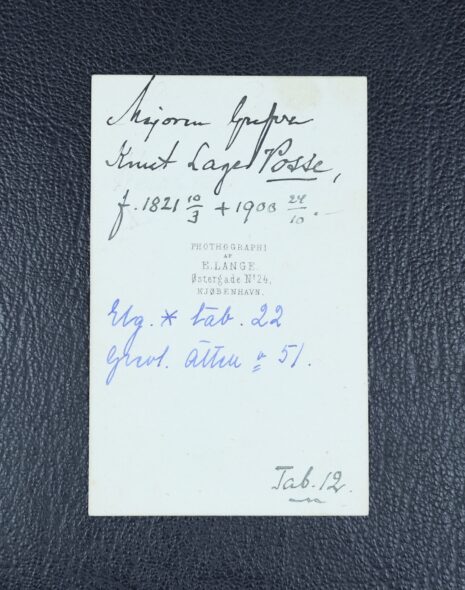 Majoren Grefve
Knut Lage Posse,
f. 1821 10/3 + 1900 24/10.
PHOTHOGRAPHI
AF
E. LANGE.
Østergade No 24,
KJØBENHAVN.
Elg. * tab. 22
Grevl. Ätten 51.
Tab. 12.